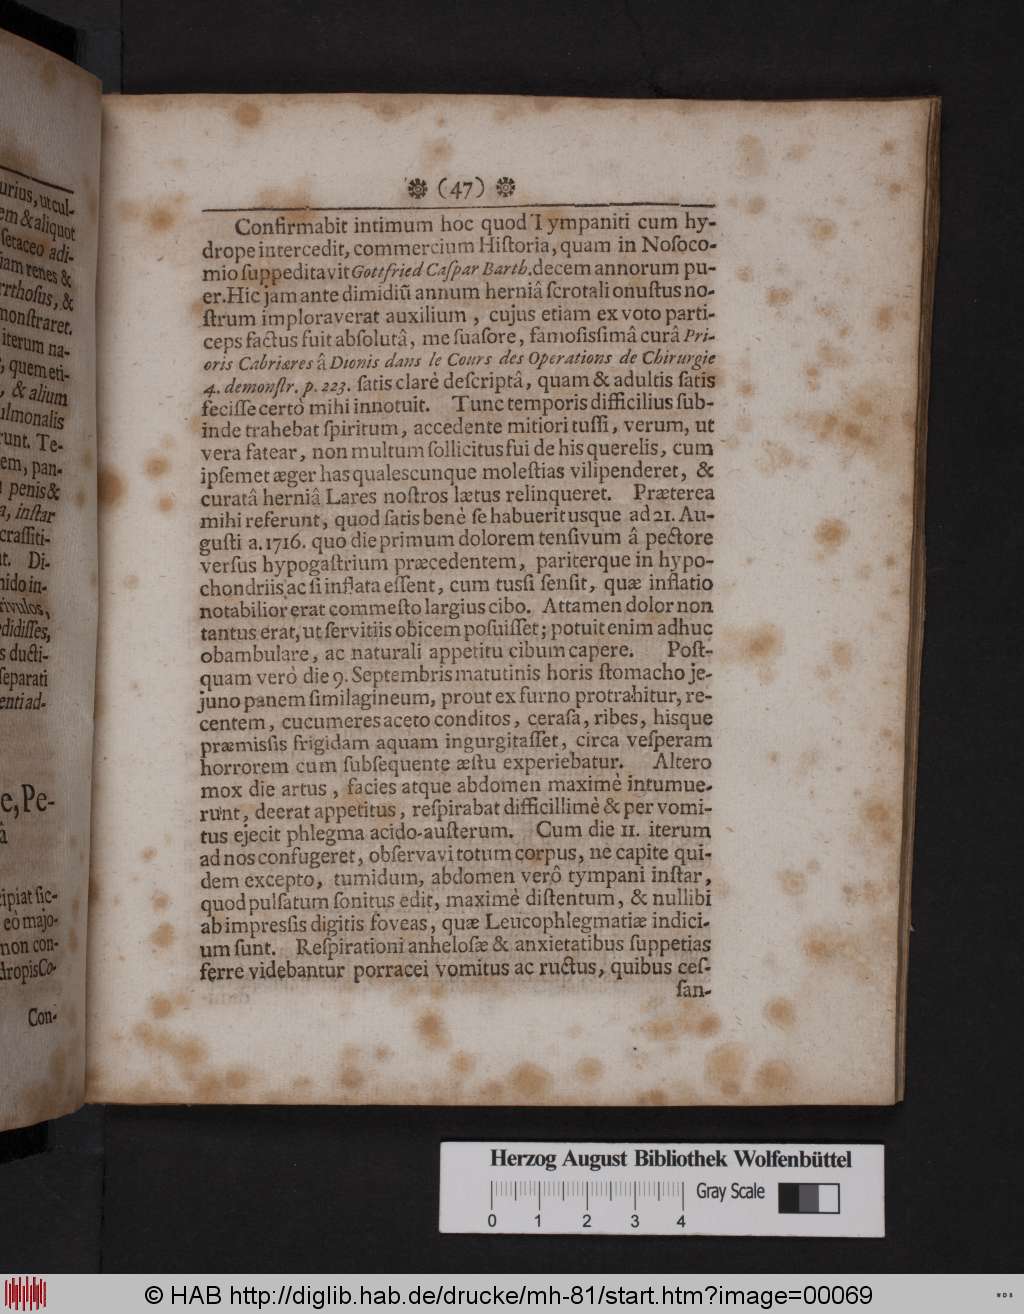 urius, ut cul-
em & aliquot
ſetaceo adi-
iam renes &
rrthoſus, &
monſtraret.
iterum na-
, quem eti-
, & alium
ulmonalis
runt. Te-
em, pan-
penis &
a, inſtar
craſſiti-
t. Di-
nido in-
rivulos,
didiſſes,
s ducti-
ſeparati
enti ad-
e, Pe-
â
cipiat ſic-
eò majo-
non con-
dropis Co-
Con-
❁ (47) ❁
Confirmabit intimum hoc quod Tympaniti cum hy-
drope intercedit, commercium Hiſtoria, quam in Noſoco-
mio ſuppeditavit Gottfried Caſpar Barth. decem annorum pu-
er. Hic jam ante dimidiũ annum herniâ ſcrotali onuſtus no-
ſtrum imploraverat auxilium, cujus etiam ex voto parti-
ceps factus fuit abſolutâ, me ſuaſore, famoſiſſimâ curâ Pri-
oris Cabriæres â Dionis dans le Cours des Operations de Chirurgie
4. demonſtr. p. 223. ſatis clarè deſcriptâ, quam & adultis ſatis
feciſſe certò mihi innotuit. Tunc temporis difficilius ſub-
inde trahebat ſpiritum, accedente mitiori tuſſi, verum, ut
vera fatear, non multum ſollicitus fui de his querelis, cum
ipſemet æger has qualescunque moleſtias vilipenderet, &
curatâ herniâ Lares noſtros lætus relinqueret. Præterea
mihi referunt, quod ſatis benè ſe habuerit usque ad 21. Au-
guſti a. 1716. quo die primum dolorem tenſivum â pectore
verſus hypogaſtrium præcedentem, pariterque in hypo-
chondriis ac ſi inflata eſſent, cum tusſi ſenſit, quæ inflatio
notabilior erat commeſto largius cibo. Attamen dolor non
tantus erat, ut ſervitiis obicem poſuiſſet; potuit enim adhuc
obambulare, ac naturali appetitu cibum capere. Poſt-
quam verò die 9. Septembris matutinis horis ſtomacho je-
juno panem ſimilagineum, prout ex furno protrahitur, re-
centem, cucumeres aceto conditos, ceraſa, ribes, hisque
præmisſis frigidam aquam ingurgitaſſet, circa veſperam
horrorem cum ſubſequente æſtu experiebatur. Altero
mox die artus, facies atque abdomen maximè intumue-
runt, deerat appetitus, reſpirabat difficillimè & per vomi-
tus ejecit phlegma acido-auſterum. Cum die 11. iterum
ad nos confugeret, obſervavi totum corpus, ne capite qui-
dem excepto, tumidum, abdomen verô tympani inſtar,
quod pulſatum ſonitus edit, maximè diſtentum, & nullibi
ab impresſis digitis foveas, quæ Leucophlegmatiæ indici-
um ſunt. Reſpirationi anheloſæ & anxietatibus ſuppetias
ferre videbantur porracei vomitus ac ructus, quibus ceſ-
ſan-
Herzog August Bibliothek Wolfenbüttel
Gray Scale
0 1 2 3 4
© HAB http://diglib.hab.de/drucke/mh-81/start.htm?image=00069